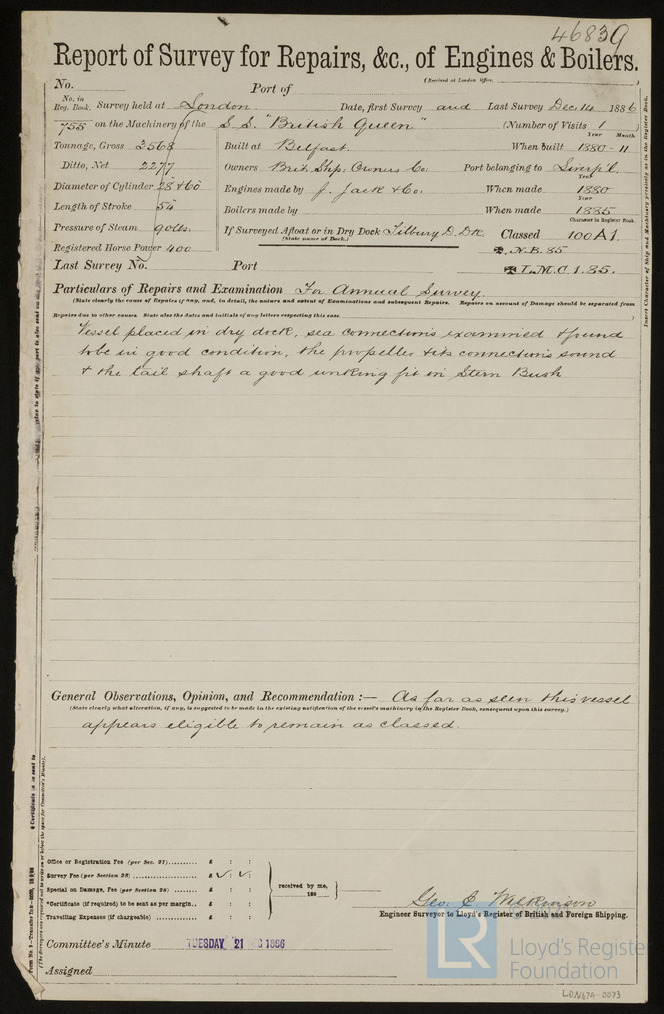 46839
Report of Survey for Repairs, &c., of Engines & Boilers.
(Received at London Office,
No. Port of
No. in Reg. Book. Survey held at London. Date, first Survey and Last Survey Dec. 14 1886
755 on the Machinery of the S.S. "British Queen" (Number of Visits 1 )
Year Month
Tonnage, Gross 3568 Built at Belfast. When built 1880-11
Ditto, Net 2277 Owners Brit. Shp: Owners Co: Port belonging to Liverp'l.
Year
Diameter of Cylinder 28 & 60 Engines made by J. Jack & Co. When made 1880
Year
Length of Stroke 54 Boilers made by When made 1885
Character in Register Book.
Pressure of Steam 90 lbs. If Surveyed Afloat or in Dry Dock Tilbury D. Dk. Classed 100A1.
(State name of Dock.)
Registered Horse Power 400 N.B. 85
Last Survey No. Port L.M.C. 1.85.
Particulars of Repairs and Examination For Annual Survey.
(State clearly the cause of Repairs if any, and, in detail, the nature and extent of Examinations and subsequent Repairs. Repairs on account of Damage should be separated from
Repairs due to other causes. State also the dates and initials of any letters respecting this case. )
Vessel placed in dry dock, sea connections examined & found
to be in good condition, the propeller & its connections sound
& the tail shaft a good working fit in Stern Bush
General Observations, Opinion, and Recommendation :— As far as seen this vessel
(State clearly what alteration, if any, is suggested to be made in the existing notification of the vessel's machinery in the Register Book, consequent upon this survey.)
appears eligible to remain as classed.
Office or Registration Fee (per Sec. 27).......... £ : :
Survey Fee (per Section 28) .......... £ ✓ : ✓ :
Special on Damage, Fee (per Section 28) .......... £ : :
*Certificate (if required) to be sent as per margin.. £ : :
Travelling Expenses (if chargeable) .......... £ : :
received by me,
188
Geo. C. Wilkinson
Engineer Surveyor to Lloyd's Register of British and Foreign Shipping.
Committee's Minute TUESDAY 21 1886
Assigned
Insert Character of Ship and Machinery precisely as in the Register Book.
LR
Lloyd's Register
Foundation
LDN679-0073